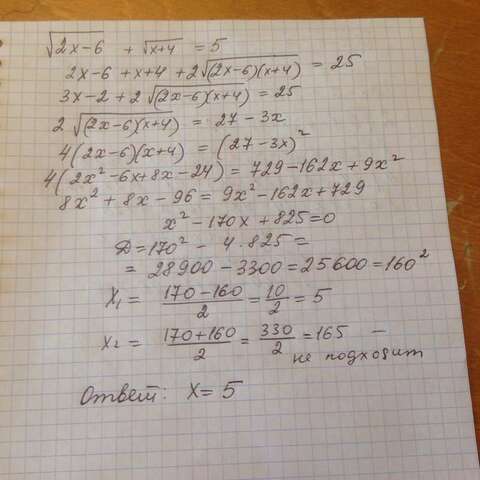 √2x-6 + √x+4 = 5
2x-6 + x+4 + 2√(2x-6)(x+4) = 25
3x-2 + 2√(2x-6)(x+4) = 25
2√(2x-6)(x+4) = 27-3x
4(2x-6)(x+4) = (27-3x)²
4(2x²-6x+8x-24) = 729-162x+9x²
8x²+8x-96 = 9x²-162x+729
x²-170x+825=0
D=170²- 4.825=
= 28900-3300=25600=160²
X₁ = 170-160/2 = 10/2 = 5
X₂ = 170+160/2 = 330/2 = 165 –
не подходит
Ответ: X= 5